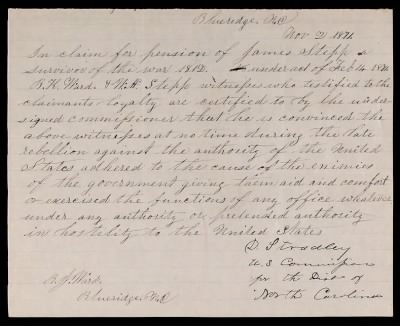 Blueridge, NC
Nov 21 1871
In claim for pension of James Stepp a
Survivor of the war 1812. under act of Feb 14 1871
B.K. Ward. & W.H. Stepp witnesses who testified to the
claimants loyalty are certified to by the under-
signed commissioner that he is convinced the
above witnesses at no time during the late
rebellion against the authority of the United
States adhered to the cause of the enemies
of the government giving them aid and comfort
or exercised the functions of any office whatever
under any authority or pretended authority
in hostility to the United States
D Stradley
U.S Commissioner
for the Dist of
North Carolina
Ward.
Blueridge, NC